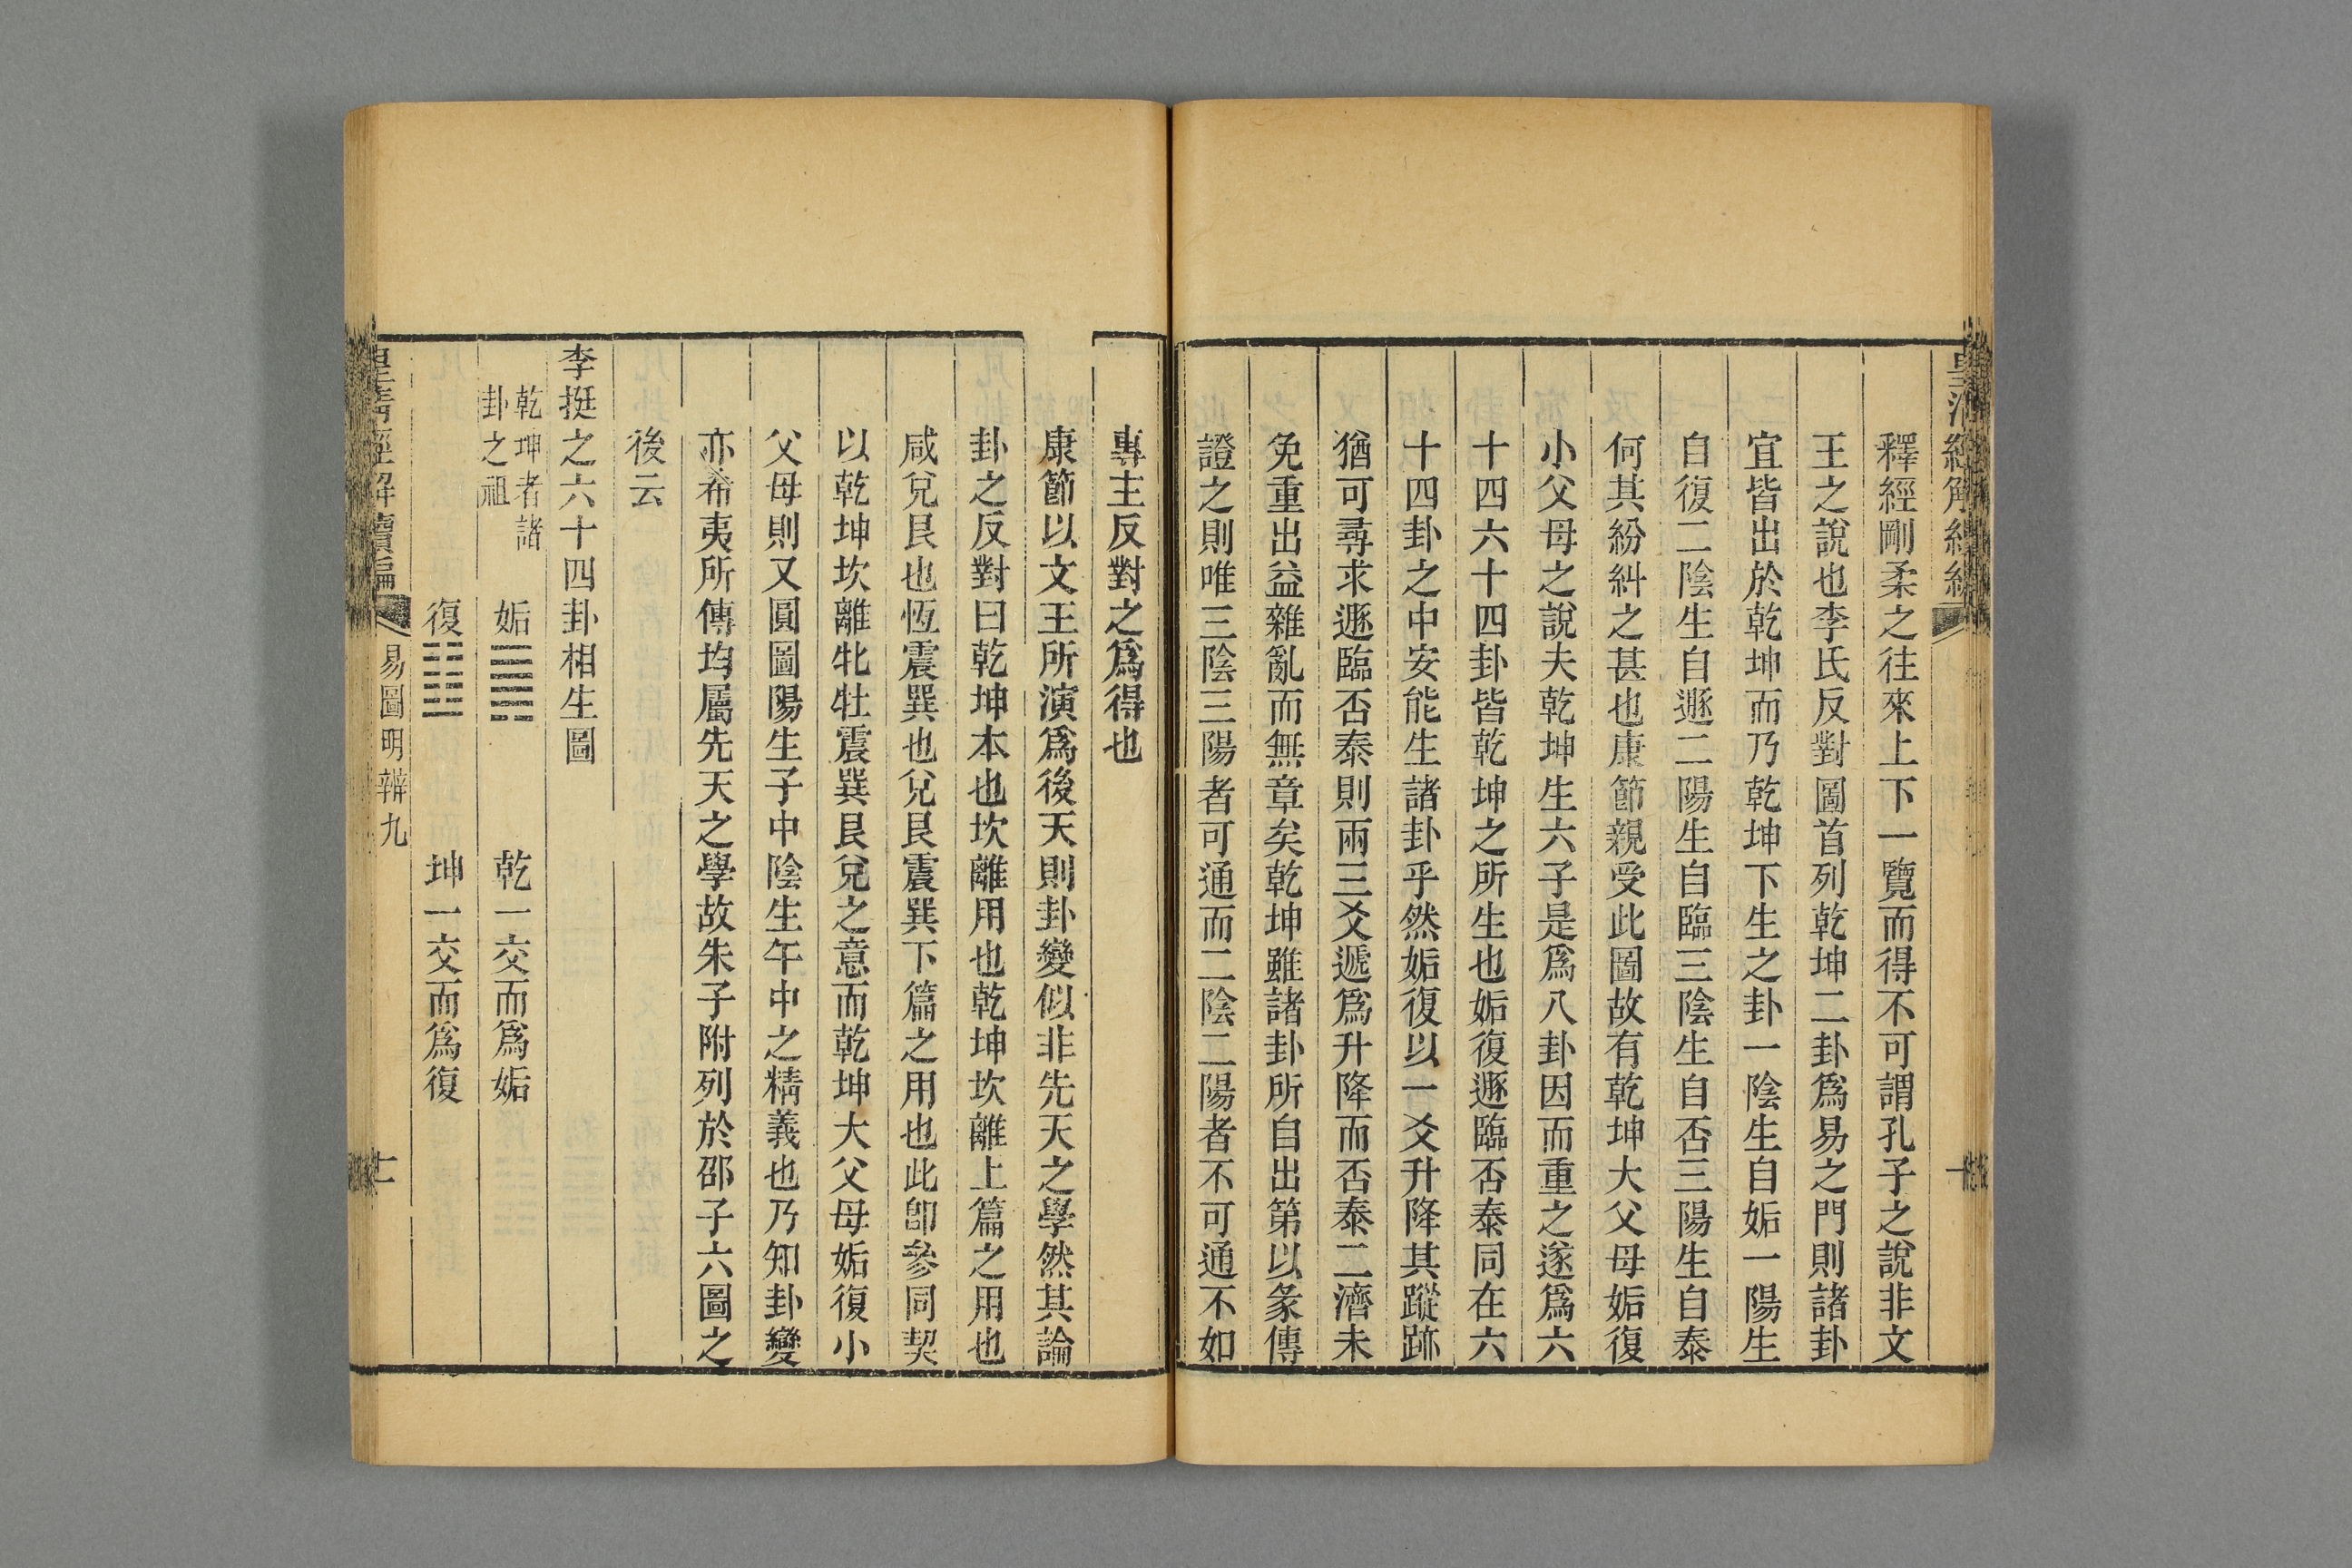 釋經剛柔之往來上下一覽而得不可謂孔子之說非文
王之說也李氏反對圖首列乾坤二卦爲易之門則諸卦
宜皆出於乾坤而乃乾坤下生之卦一陰生自姤一陽生
自復二陰生自遯二陽生自臨三陰生自否三陽生自泰
何其紛糾之甚也康節親受此圖故有乾坤大父母姤復
小父母之說夫乾坤生六子是爲八卦因而重之遂爲六
十四六十四卦皆乾坤之所生也姤復遯臨否泰同在六
十四卦之中安能生諸卦乎然姤復以一爻升降其蹤跡
猶可尋求遯臨否泰則兩三爻遞爲升降而否泰二濟未
免重出益雜亂而無章矣乾坤雖諸卦所自出第以彖傳
證之則唯三陰三陽者可通而二陰二陽者不可通不如
專主反對之爲得也
康節以文王所演爲後天則卦變似非先天之學然其論
卦之反對曰乾坤本也坎離用也乾坤坎離上篇之用也
咸兌艮也恆震巽也兌艮震巽下篇之用也此卽參同契
以乾坤坎離牝牡震巽艮兌之意而乾坤大父母姤復小
父母則又圓圖陽生子中陰生午中之精義也乃知卦變
亦希夷所傳均屬先天之學故朱子附列於邵子六圖之
後云
李挺之六十四卦相生圖
乾坤者諸
卦之祖
姤䷫ 乾一交而爲姤
復䷗ 坤一交而爲復
皇清經解續編 易圖明辨九 十一